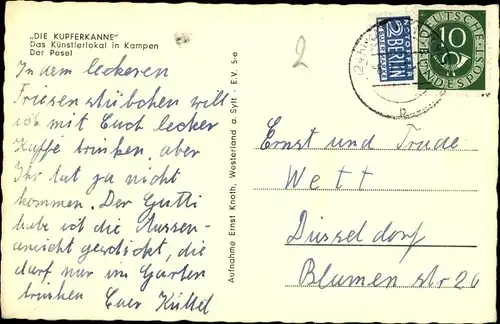 „DIE KUPFERKANNE"
Das Künstlerlokal in Kampen
Der Pesel
In dem leckeren
Friesenstübchen will
ich mit Euch lecker
Kaffe trinken, aber
Ihr tut ja nicht
kommen. Der Gutti
habe ich die Aussen-
ansicht geschickt, die
darf nur im Garten
trinken Euer Küttel
Aufnahme Ernst Knoth, Westerland a. Sylt - E.V. 5-e
2
NOTOPFER
2 BERLIN
STEUERMARKE
DEUTSCHE
10
BUNDESPOST
Ernst und Trude
Wett
Düsseldorf
Blumenstr 26